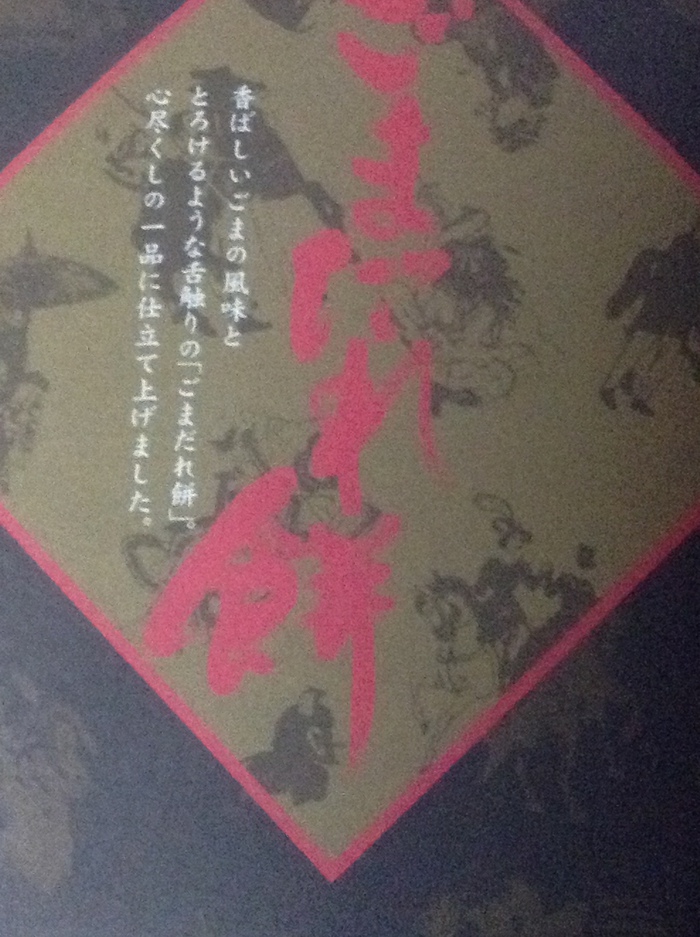 ごまだれ餅
香ばしいごまの風味と
とろけるような舌触りの「ごまだれ餅」。
心尽くしの一品に仕立て上げました。